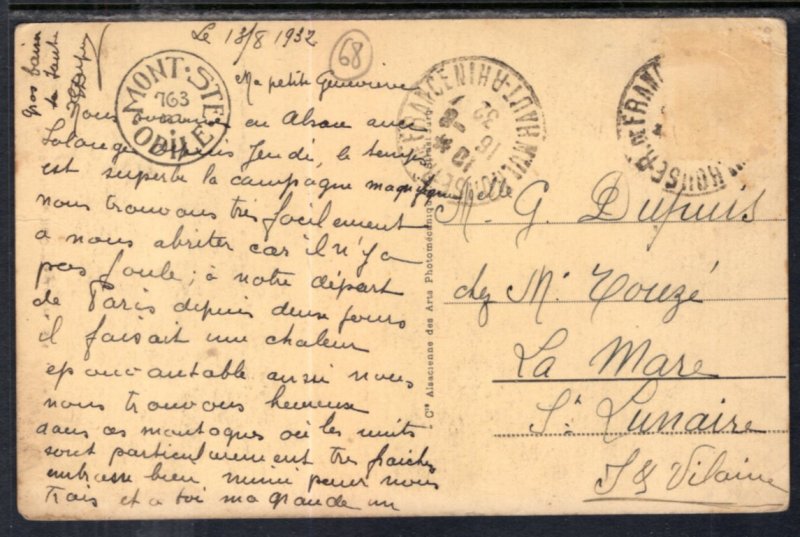 Le 13/8 1932
68
Ma petite Geneviève
Nous sommes en Alsace avec
Solange depuis Jeudi, le temps
est superbe la campagne magnifique
nous trouvons très facilement
a nous abriter car il n'y a
pas foule ; à notre départ
de Paris depuis deux jours
il faisait une chaleur
epouvantable aussi nous
nous trouvons heureux
dans ces montagnes où les nuits
sont particulièrement très fraiches
embrasse bien mimi pour nous
trois et a toi ma grande un
gros baiser
ta tante
MONT·STE
763
ODILE
Cie Alsacienne des Arts Photomécaniques
HAUT-RHIN
16
8
32
Melle G. Dupuis
chez Me Touzé
La Mare
St Lunaire
I & Vilaine